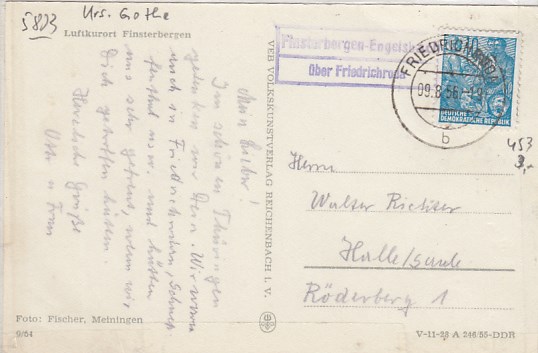 5803
Krs. Gotha
Luftkurort Finsterbergen
Mein Lieber!
Im schönen Thüringen
gedenken wir Dein. Wir waren
auch in Friedrichroda, Schnepf
fenthal usw. und hätten
uns sehr gefreut, wenn wir
Dich getroffen hätten.
Herzliche Grüße
Otto u. Frau
Foto: Fischer, Meiningen
9/54
VEB VOLKSKUNSTVERLAG REICHENBACH I. V.
Finsterbergen-Engelsb
über Friedrichroda
FRIEDRICHRODA
09.8.56
b
DEUTSCHE
DEMOKRATISCHE REPUBLIK
453
Herrn
Walter Richter
Halle/Saale
Röderberg 1
V-11-28 A 246/55-DDR